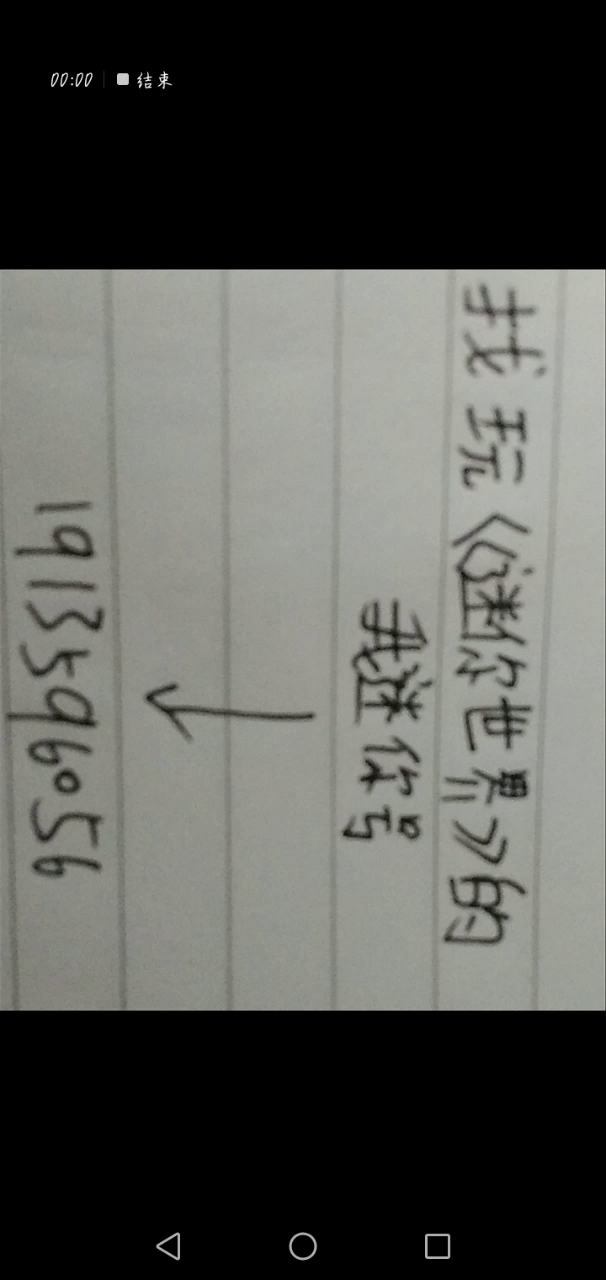 00:00 结束
找玩《迷你世界》的
我迷你号
1913596056